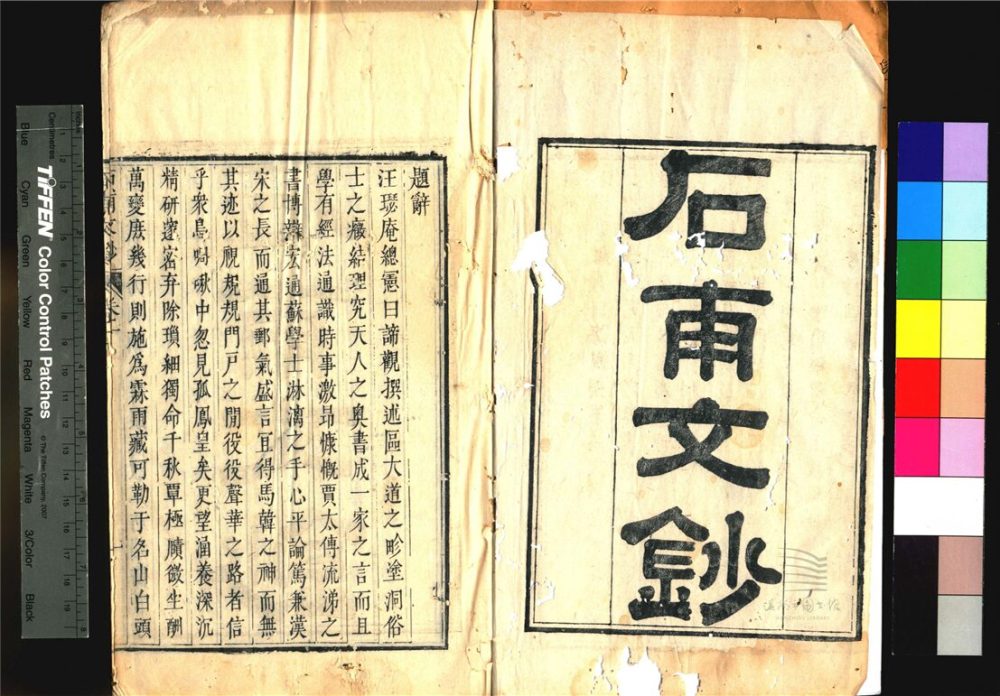 石甫文鈔
題辭
汪瑟庵總憲曰諦觀撰述區大道之畛塗洞俗
士之癥結理究天人之奥書成一家之言而且
學有經法通識時事激昂慷慨賈太傅流涕之
書博辯宏通蘇學士淋漓之手心平論篤兼漢
宋之長而通其郵氣盛言宜得馬韓之神而無
其迹以視規規門戸之閒役役聲華之路者信
乎衆鳥啁啾中忽見孤鳳皇矣更望涵養深沉
精研邃密弃除瑣細獨命千秋覃極賾微生酬
萬變庶幾行則施爲霖雨藏可勒于名山白頭
TIFFEN Color Control Patches
© The Tiffen Company, 2007
Centimetres
Blue
Cyan
Green
Yellow
Red
Magenta
White
3/Color
Black